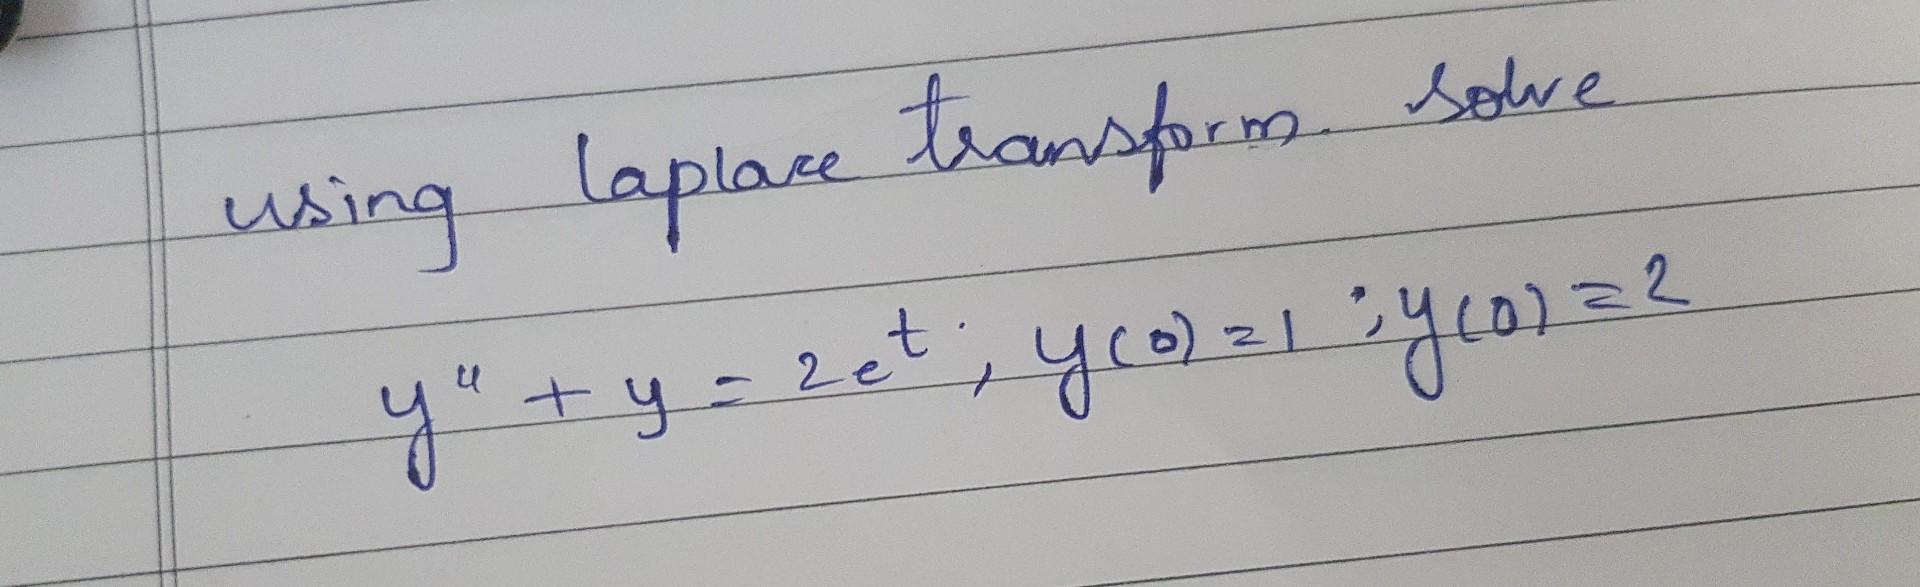 using laplace transform. solve
y" + y = 2e^t ; y(0) = 1 ; y(0) = 2